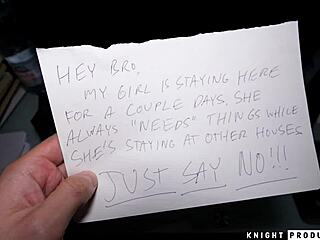 HEY BRO,
MY GIRL IS STAYING HERE
FOR A COUPLE DAYS. SHE
ALWAYS "NEEDS" THINGS WHILE
SHE'S STAYING AT OTHER HOUSES
JUST SAY NO!!!
KNIGHT PRODU